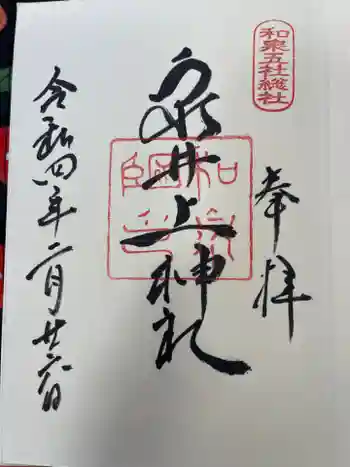 和泉五社総社
奉拝
泉井上神社
令和四年二月廿六日